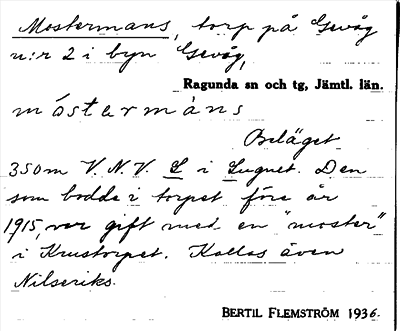 Mostermans, torp på Gevåg
n:r 2 i byn Gevåg,
Ragunda sn och tg, Jämtl. län.
móstermàns
Beläget
350m V.N.V. L i Lugnet. Den
som bodde i torpet före år
1915, var gift med en "moster"
i Krustorpet. Kallas även
Nilseriks.
BERTIL FLEMSTRÖM 1936.